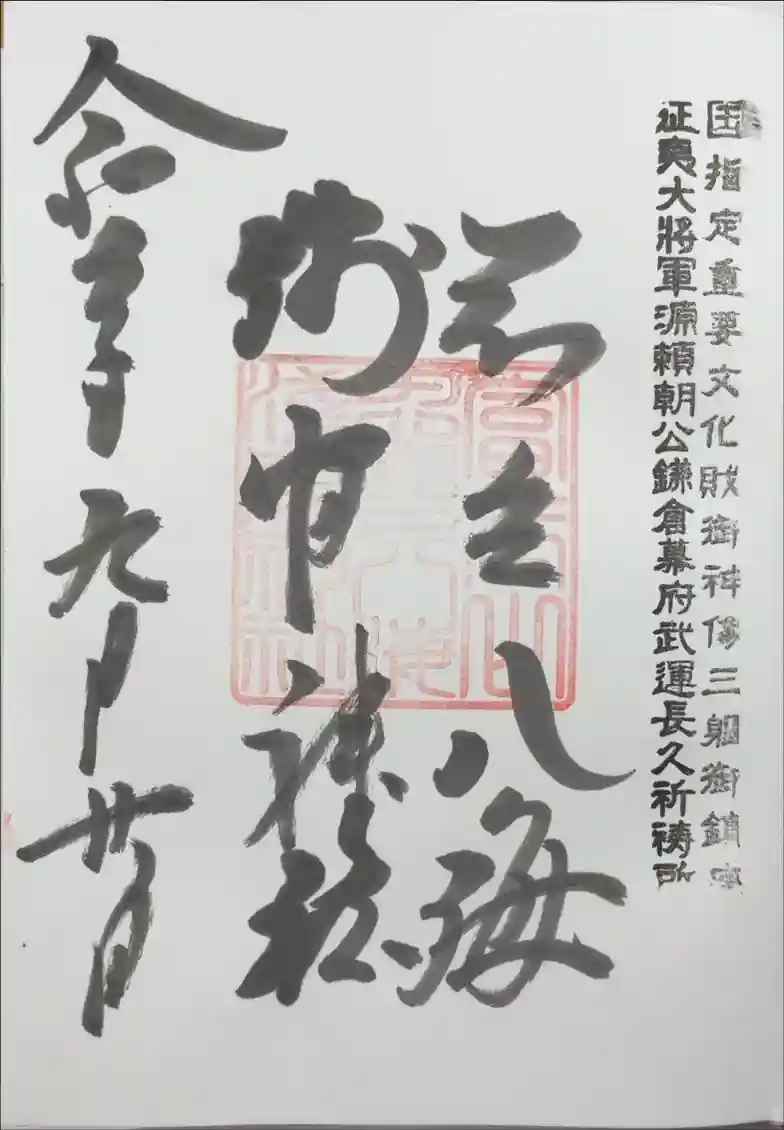 国指定重要文化財御神像三躯御鎮座
征夷大將軍源頼朝公鎌倉幕府武運長久祈祷所
忍野八海
浅間神社
令和 年九月廿日
富士山